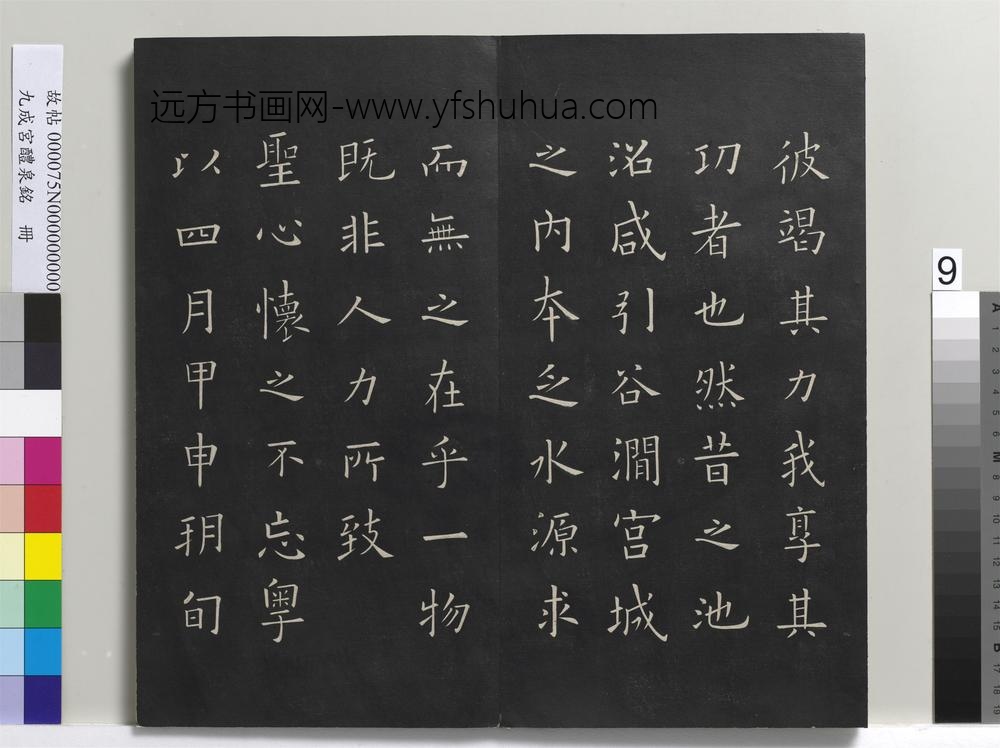 远方书画网-www.yfshuhua.com
彼竭其力我享其
功者也然昔之池
沼咸引谷澗宮城
之内本乏水源求
而無之在乎一物
既非人力所致
聖心懷之不忘粵
以四月甲申朔旬
故帖 000075N000000000
九成宮醴泉銘 冊
9